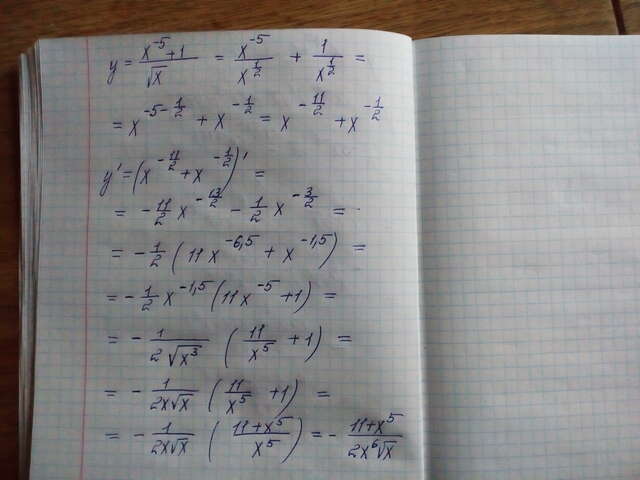 y = (x^-5 + 1)/√x = x^-5/x^(1/2) + 1/x^(1/2) =
= x^(-5-1/2) + x^(-1/2) = x^(-11/2) + x^(-1/2)
y' = (x^(-11/2) + x^(-1/2))' =
= -11/2 x^(-13/2) - 1/2 x^(-3/2) =
= -1/2 (11x^-6,5 + x^-1,5) =
= -1/2 x^-1,5 (11x^-5 + 1) =
= -1/(2√x^3) (11/x^5 + 1) =
= -1/(2x√x) (11/x^5 + 1) =
= -1/(2x√x) ((11+x^5)/x^5) = -(11+x^5)/(2x^6√x)